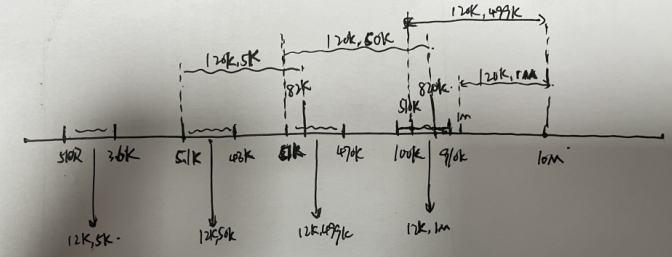 120K,499K
120K,50K
120K,5K
82K
510K
820K
1M
120K,1M
510R
3.6K
5.1K
43K
51K
470K
100K
910K
10M
12K,5K
12K,50K
12K,499K
12K,1M